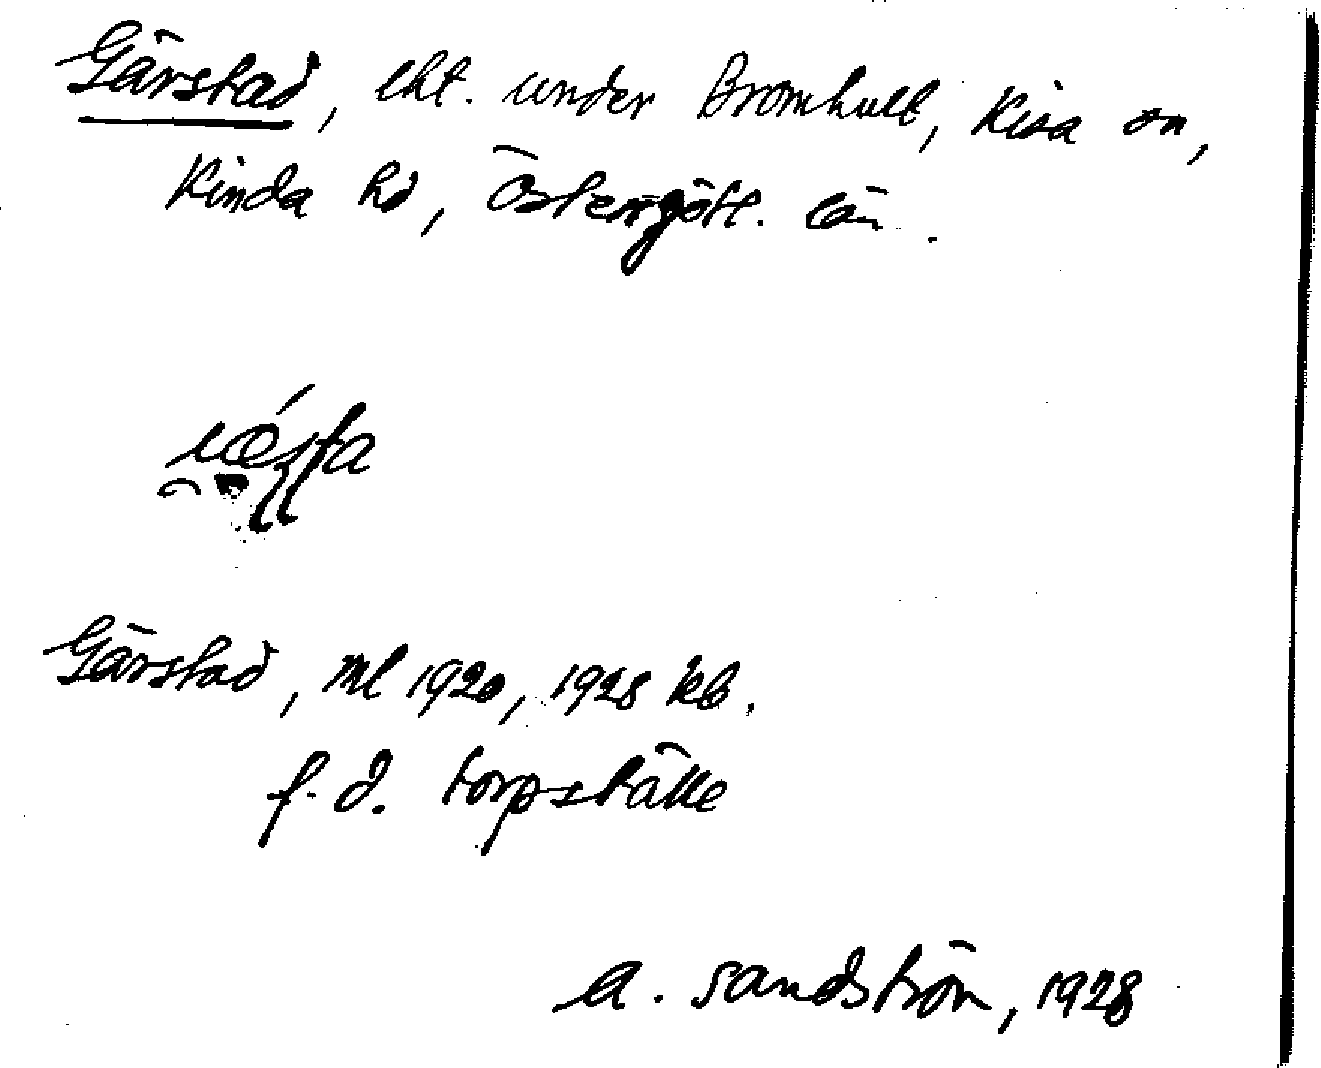 Gärstad, lht. under Bromhult, Kisa sn,
Kinda hd, Östergötl. län.
Gärstad, ml 1920, 1928 kb.
f.d. torpställe
A. Sandström, 1928